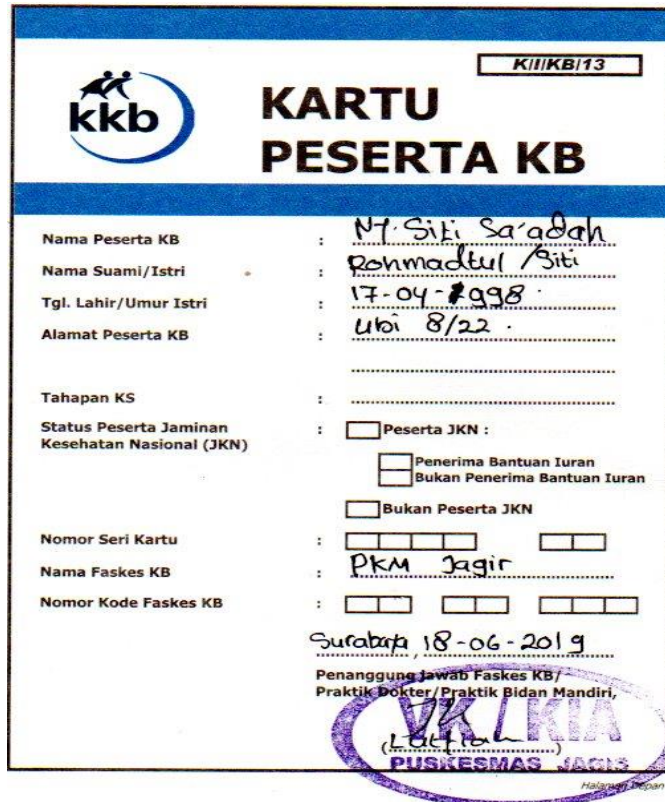 K/I/KB/13
kkb
KARTU
PESERTA KB
Nama Peserta KB : Ny. Siti Sa'adah
Nama Suami/Istri : Rohmadtul / Siti
Tgl. Lahir/Umur Istri : 17-04-1998.
Alamat Peserta KB : Ubi 8/22.
Tahapan KS :
Status Peserta Jaminan : Peserta JKN :
Kesehatan Nasional (JKN)
Penerima Bantuan Iuran
Bukan Penerima Bantuan Iuran
Bukan Peserta JKN
Nomor Seri Kartu :
Nama Faskes KB : PKM Jagir
Nomor Kode Faskes KB :
Surabaya, 18-06-2019
Penanggung Jawab Faskes KB/
Praktik Dokter/Praktik Bidan Mandiri,
VK / KIA
PUSKESMAS JAGIR
Halaman Depan